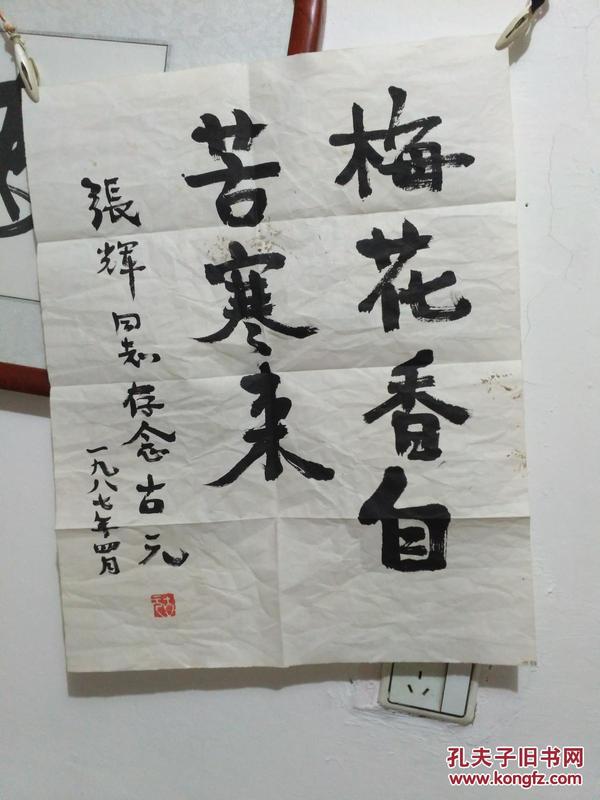 梅花香自
苦寒来
張輝同志存念古元
一九八七年四月
孔夫子旧书网
www.kongfz.com